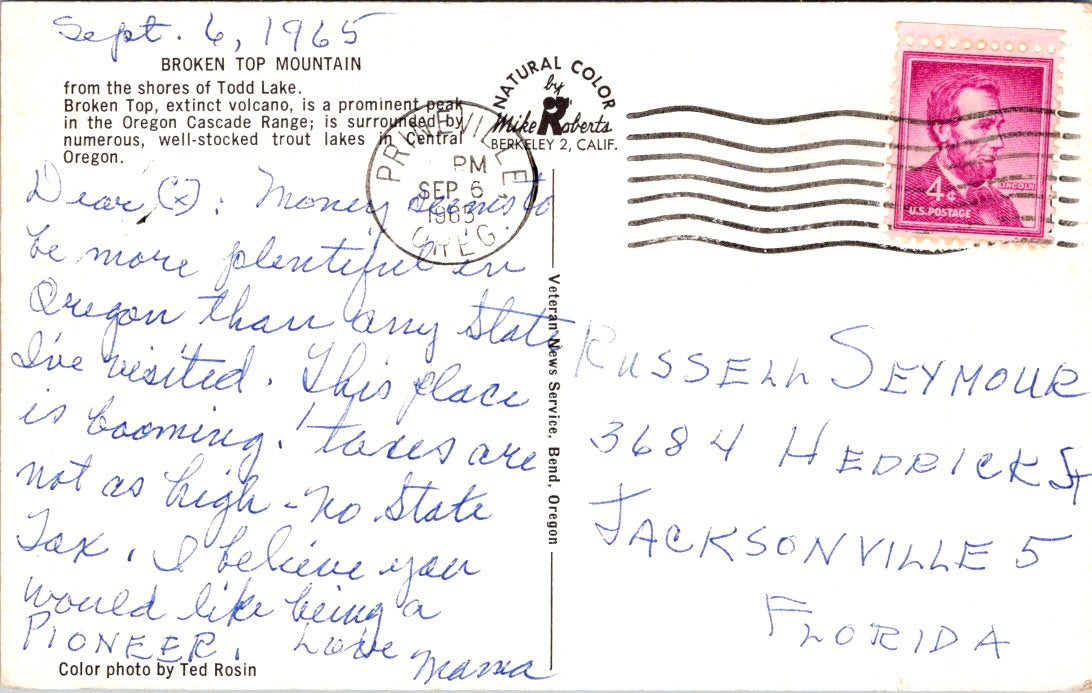 Sept. 6, 1965
BROKEN TOP MOUNTAIN
from the shores of Todd Lake.
Broken Top, extinct volcano, is a prominent peak
in the Oregon Cascade Range; is surrounded by
numerous, well-stocked trout lakes in Central
Oregon.
NATURAL COLOR
by
Mike Roberts
BERKELEY 2, CALIF.
PRINEVILLE
PM
SEP 6
1965
OREG.
4¢
LINCOLN
U.S. POSTAGE
Dear (x): Money seems to
be more plentiful in
Oregon than any State
I've visited. This place
is booming! taxes are
not as high - no State
Tax. I believe you
would like being a
PIONEER. Love
Mama
Color photo by Ted Rosin
Veteran News Service, Bend, Oregon
RUSSELL SEYMOUR
3684 HEDRICK St
JACKSONVILLE 5
FLORIDA